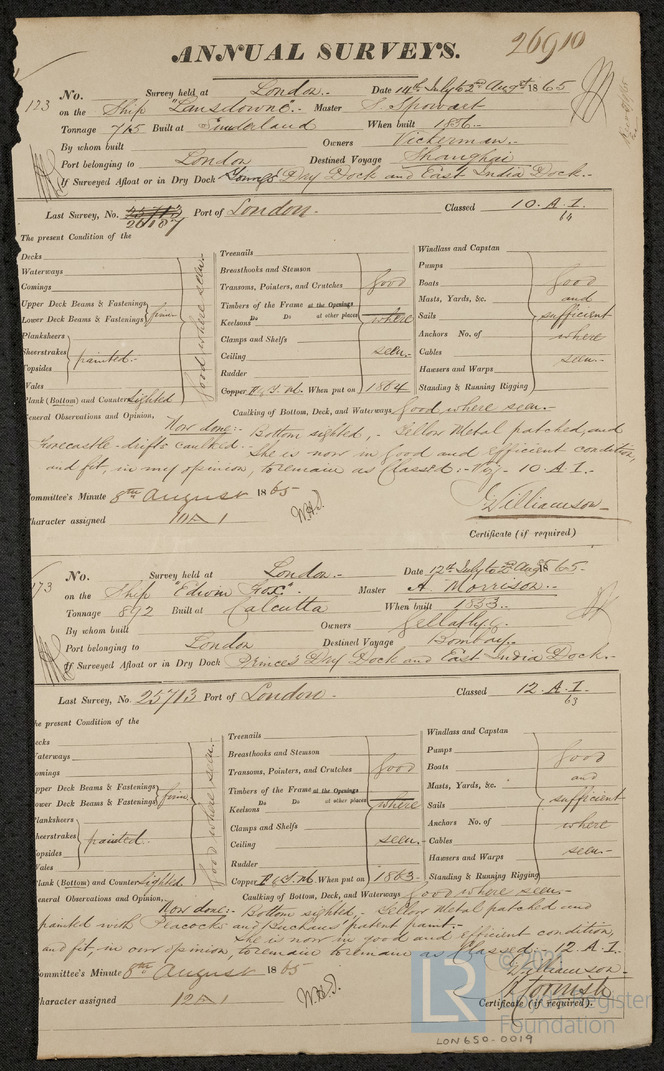 ANNUAL SURVEYS. 26910
123 No. Survey held at London. Date 14th July to 2nd Augt 1865
on the Ship "Lansdowne". Master S. Spowart
Tonnage 715 Built at Sunderland When built 1856.
By whom built Owners Vickerman.
Port belonging to London Destined Voyage Shanghai
If Surveyed Afloat or in Dry Dock Dry Dock and East India Dock.
Last Survey, No. 26187 Port of London. Classed 10. A.1.
64
The present Condition of the
Decks
Waterways
Comings
Upper Deck Beams & Fastenings
Lower Deck Beams & Fastenings firm
Planksheers
Sheerstrakes painted.
Topsides
Wales
Plank (Bottom) and Counter sighted
good where seen.
Treenails
Breasthooks and Stemson
Transoms, Pointers, and Crutches good
Timbers of the Frame at the Openings
Do Do at other places where
Keelsons
Clamps and Shelfs
Ceiling seen.
Rudder
Copper When put on 1864
Windlass and Capstan
Pumps
Boats good
Masts, Yards, &c. and
Sails sufficient
Anchors No. of where
Cables seen.
Hawsers and Warps
Standing & Running Rigging
General Observations and Opinion, Caulking of Bottom, Deck, and Waterways good where seen.
Now done:- Bottom sighted,- Yellow Metal patched, and
Forecastle drifts caulked. She is now in good and efficient condition,
and fit, in my opinion, to remain as Classed:- Viz. 10. A.1.
Committee's Minute 8th August 1865 J Williamson
Character assigned 10 A 1 Certificate (if required)
173 No. Survey held at London. Date 12th July to 2nd Augt 1865.
on the Ship "Edwin Fox". Master A. Morrison.
Tonnage 892 Built at Calcutta When built 1853.
By whom built Owners Gellatly.
Port belonging to London Destined Voyage Bombay.
If Surveyed Afloat or in Dry Dock Princes Dry Dock and East India Dock.
Last Survey, No 25713 Port of London. Classed 12. A.1.
63
he present Condition of the
ecks
aterways
omings
pper Deck Beams & Fastenings
ower Deck Beams & Fastenings firm
lanksheers
heerstrakes painted.
opsides
ales
lank (Bottom) and Counter sighted
good where seen.
Treenails
Breasthooks and Stemson
Transoms, Pointers, and Crutches good
Timbers of the Frame at the Openings
Do Do at other places where
Keelsons
Clamps and Shelfs
Ceiling seen.
Rudder
Copper When put on 1863.
Windlass and Capstan
Pumps good
Boats and
Masts, Yards, &c.
Sails sufficient
Anchors No. of where
Cables
Hawsers and Warps seen.
Standing & Running Rigging
eneral Observations and Opinion, Caulking of Bottom, Deck, and Waterways good where seen.
Now done:- Bottom sighted,- Yellow Metal patched and
painted with Peacocks and Buchans patent paint.
She is now in good and efficient condition,
and fit, in our opinion, to remain as Classed:- 12. A.1.
ommittee's Minute 8th August 1865 J Williamson
haracter assigned 12 A 1 Cornish
Certificate (if required).
LR © 2021 Lloyd's Register Foundation
LON650-0019